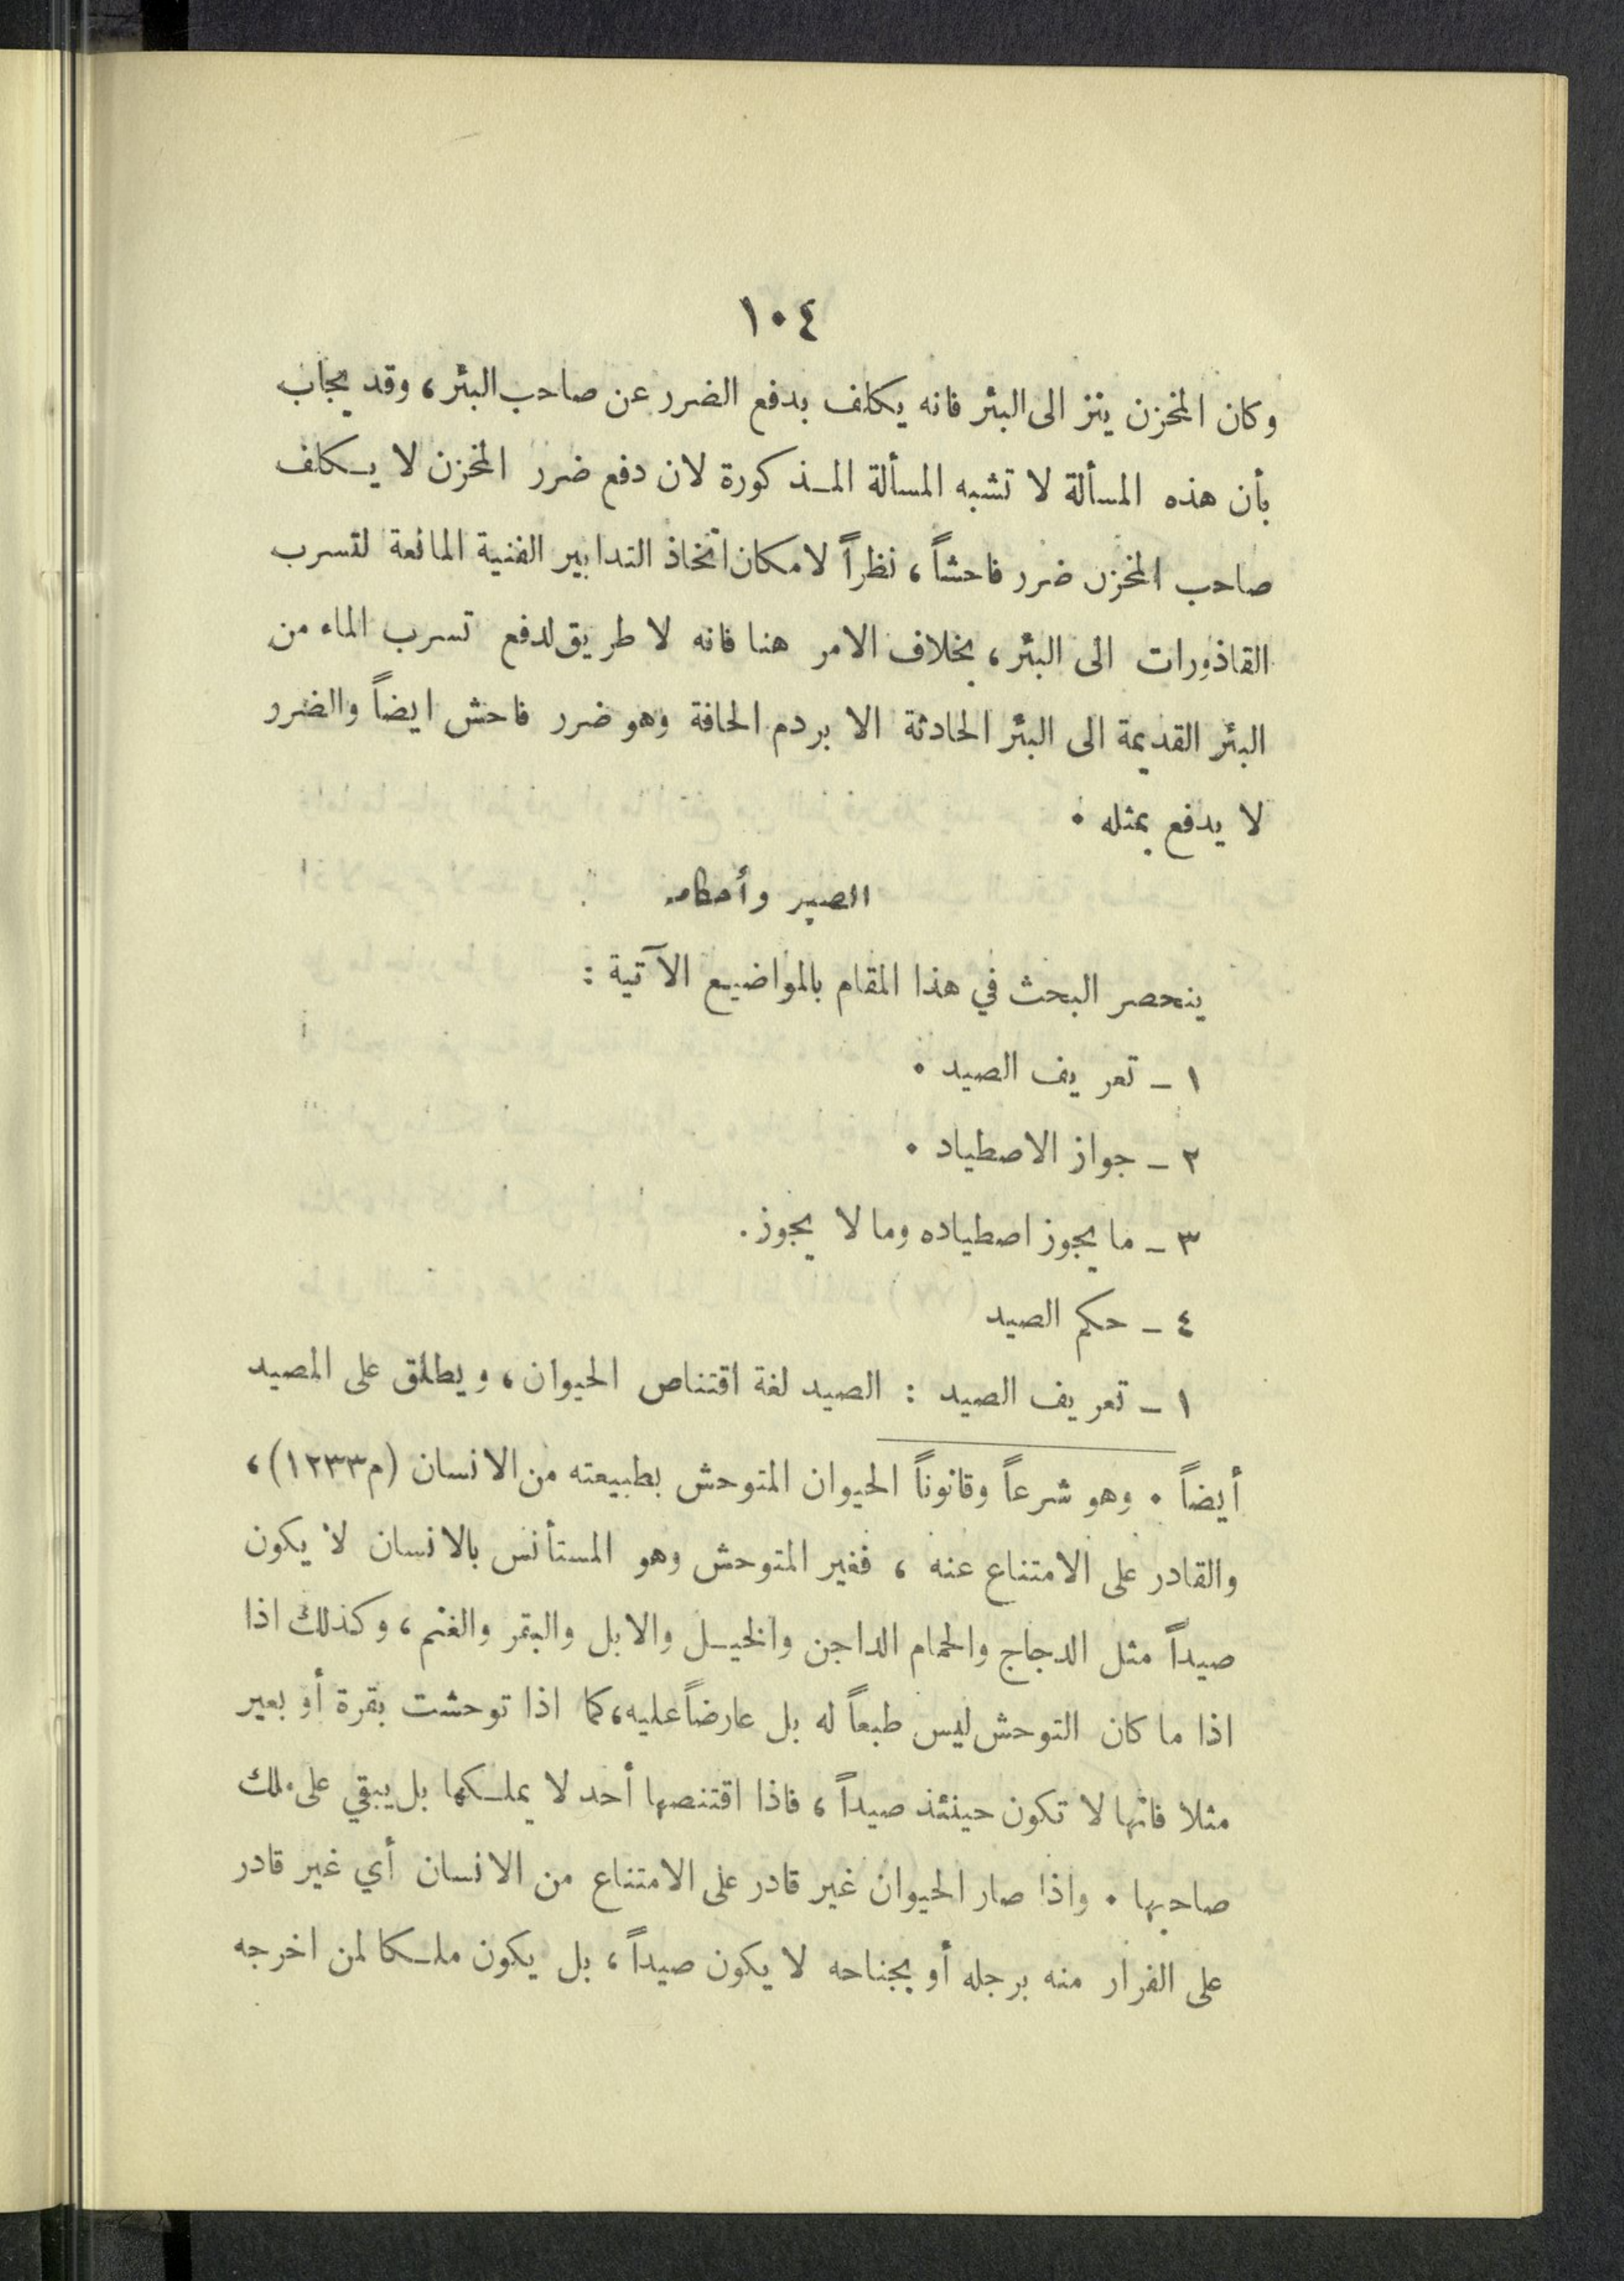 ١٠٤
وكان المخزن ينز الى البئر فانه يكلف بدفع الضرر عن صاحب البئر، وقد يجاب
بأن هذه المسألة لا تشبه المسألة المذكورة لان دفع ضرر المخزن لا يكلف
صاحب المخزن ضرر فاحشاً، نظراً لامكان اتخاذ التدابير الفنية المانعة لتسرب
القاذورات الى البئر، بخلاف الامر هنا فانه لا طريق لدفع تسرب الماء من
البئر القديمة الى البئر الحادثة الا بردم الحافة وهو ضرر فاحش ايضاً والضرر
لا يدفع بمثله .
الصيد وأحكامه
ينحصر البحث في هذا المقام بالمواضيع الآتية :
١ - تعريف الصيد .
٢ - جواز الاصطياد .
٣ - ما يجوز اصطياده وما لا يجوز.
٤ - حكم الصيد
١ - تعريف الصيد : الصيد لغة اقتناص الحيوان، ويطلق على المصيد
أيضاً . وهو شرعاً وقانوناً الحيوان المتوحش بطبيعته من الانسان (م١٢٣٣)،
والقادر على الامتناع عنه ، فغير المتوحش وهو المستأنس بالانسان لا يكون
صيداً مثل الدجاج والحمام الداجن والخيل والابل والبقر والغنم، وكذلك اذا
اذا ما كان التوحش ليس طبعاً له بل عارضاً عليه، كما اذا توحشت بقرة أو بعير
مثلا فانها لا تكون حينئذ صيداً ، فاذا اقتنصها أحد لا يملكها بل يبقي على ملك
صاحبها . واذا صار الحيوان غير قادر على الامتناع من الانسان أي غير قادر
على الفرار منه برجله أو بجناحه لا يكون صيداً ، بل يكون ملكا لمن اخرجه